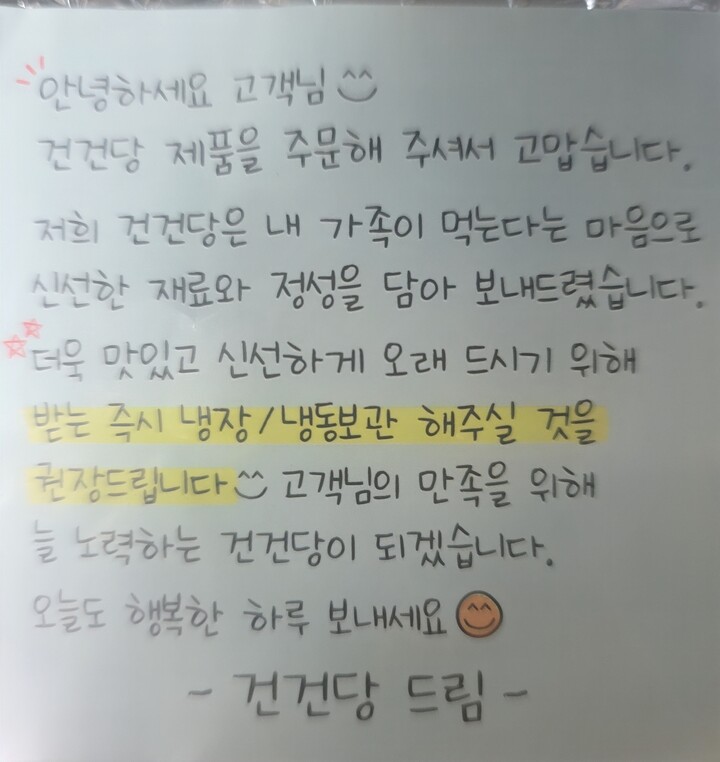 안녕하세요 고객님
건건당 제품을 주문해 주셔서 고맙습니다.
저희 건건당은 내 가족이 먹는다는 마음으로
신선한 재료와 정성을 담아 보내드렸습니다.
더욱 맛있고 신선하게 오래 드시기 위해
받는 즉시 냉장/냉동보관 해주실 것을
권장드립니다 고객님의 만족을 위해
늘 노력하는 건건당이 되겠습니다.
오늘도 행복한 하루 보내세요
- 건건당 드림 -